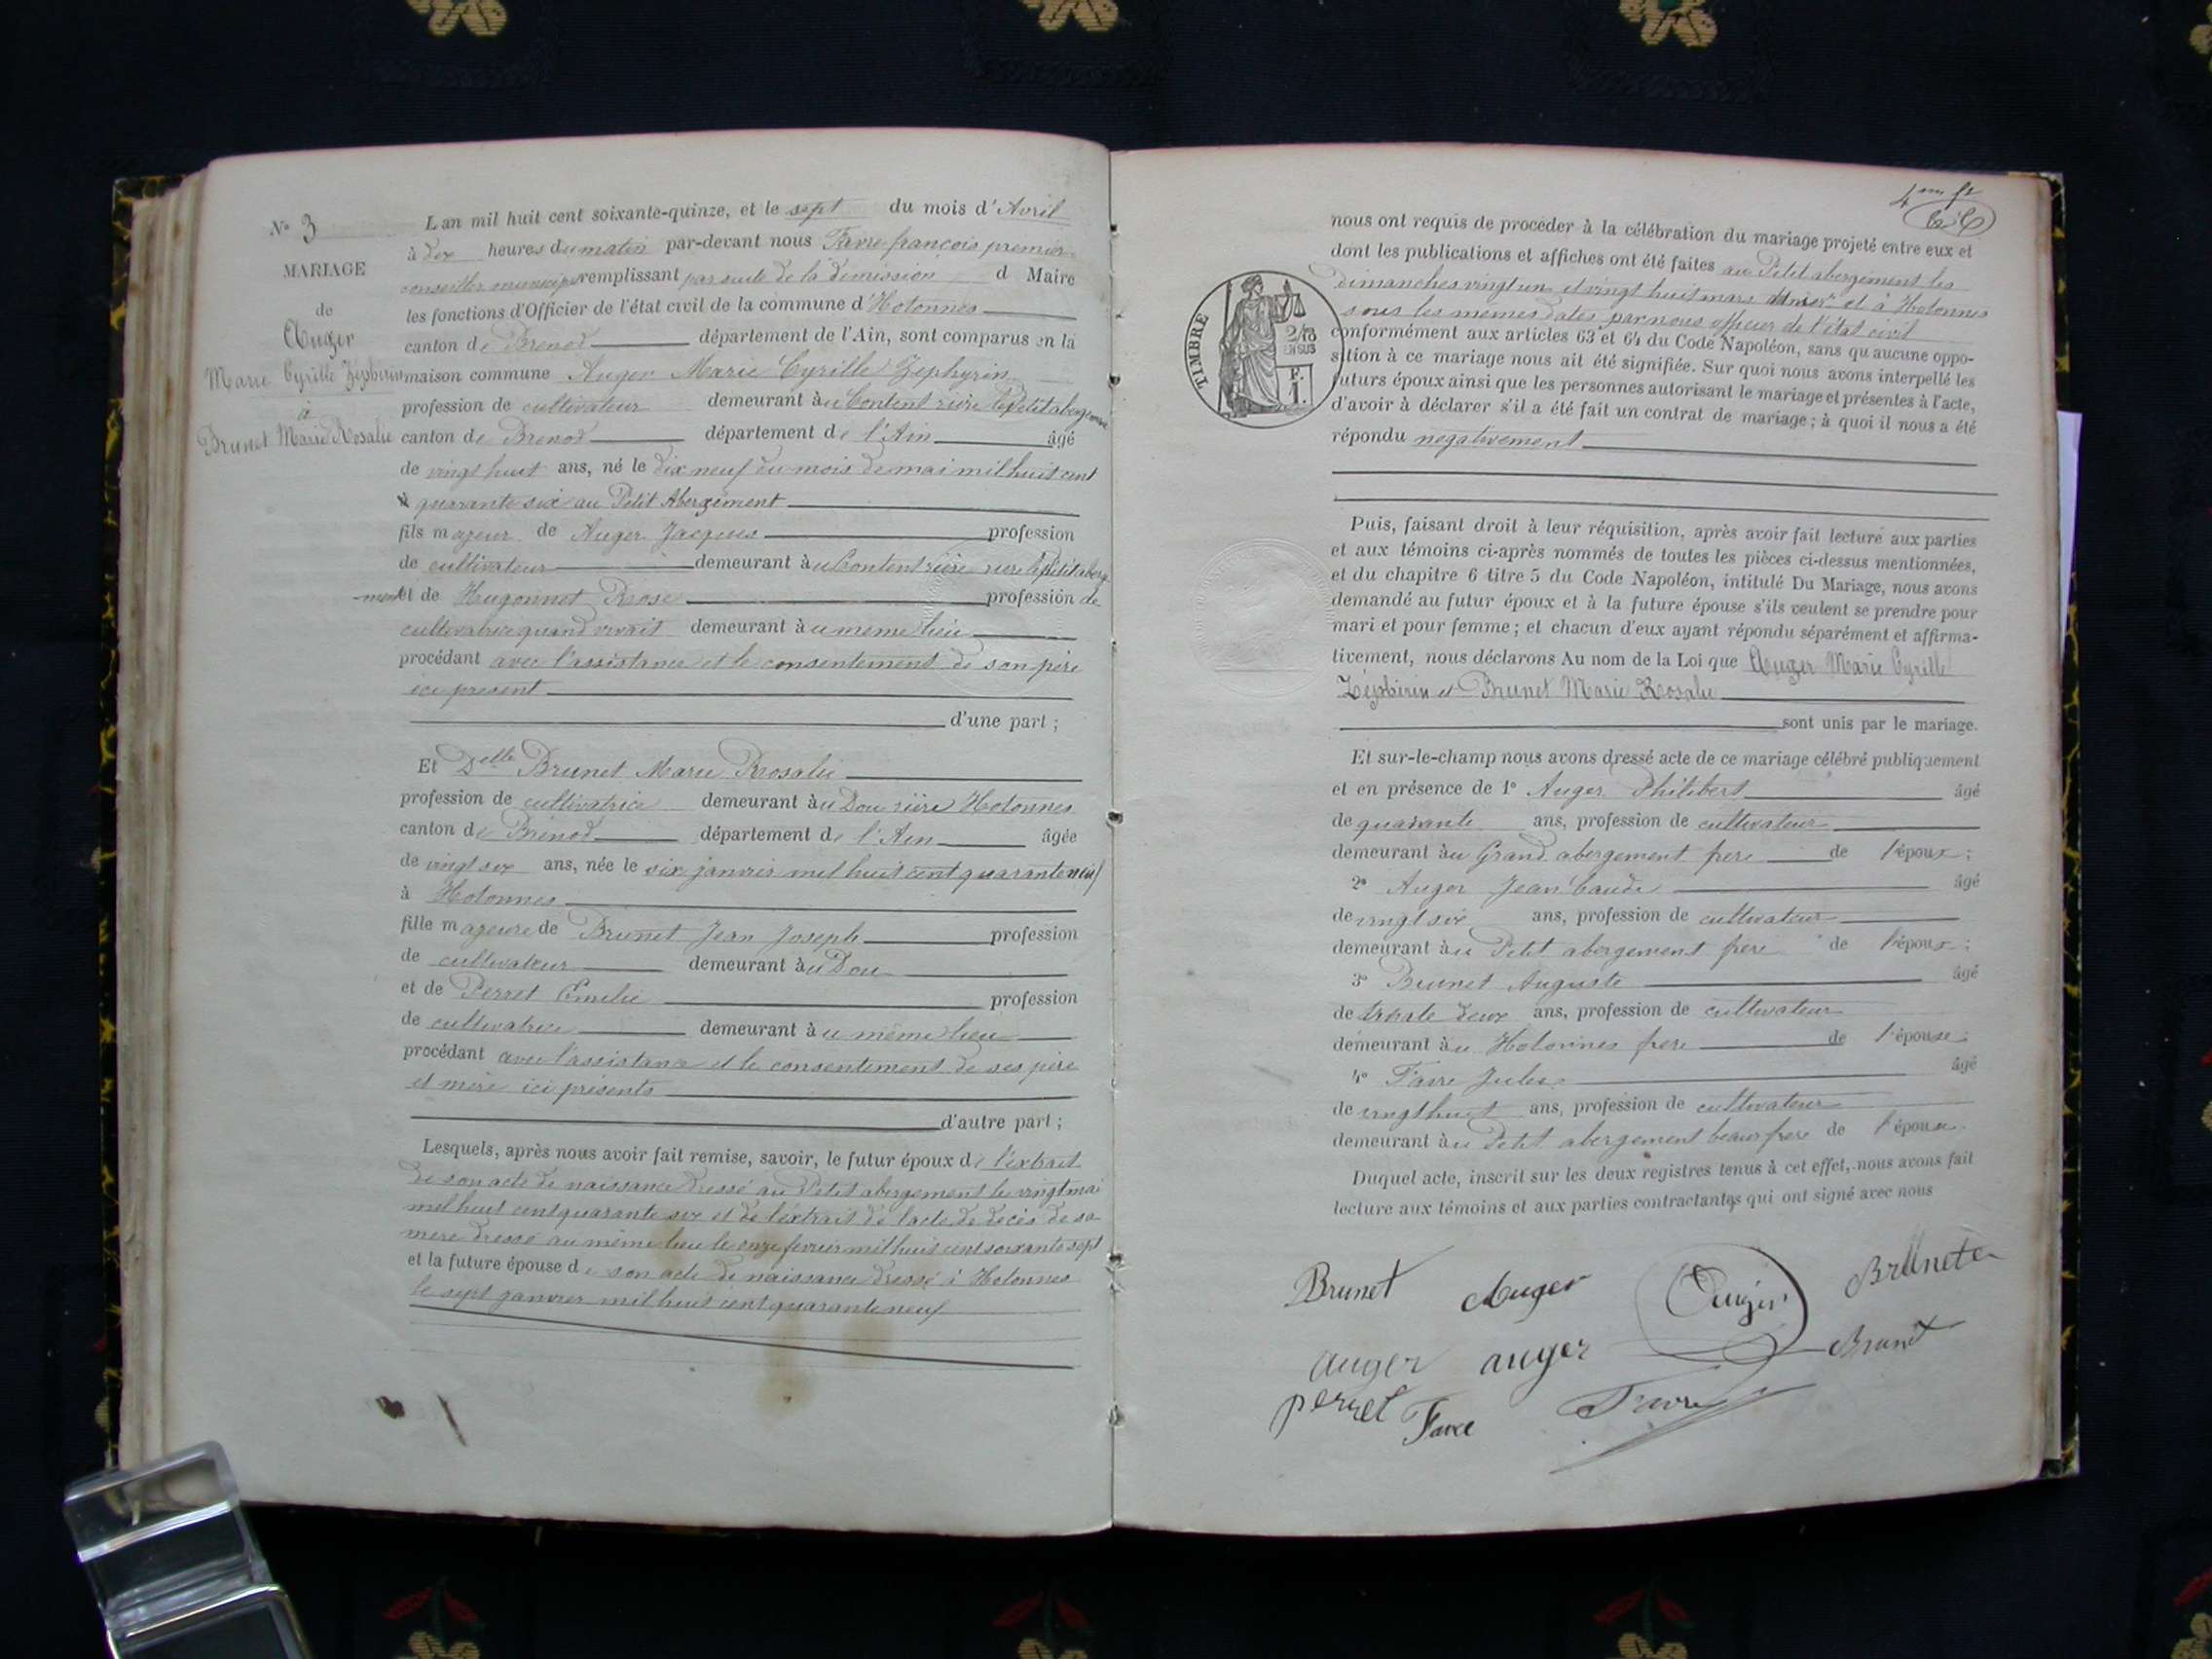 N° 3
MARIAGE
de
Auger
Marie Cyrille Zéphirin
à
Brunet Marie Rosalie
L'an mil huit cent soixante-quinze, et le sept du mois d'Avril
à dix heures du matin par-devant nous Favre françois premier
conseiller municipal remplissant par suite de la démission d Maire
les fonctions d'Officier de l'état civil de la commune d'Hotonnes
canton de Brenod département de l'Ain, sont comparus en la
maison commune Auger Marie Cyrille Zephyrin
profession de cultivateur demeurant à u Content rière le Petit aberge
canton de Brenod département de l'Ain âgé
de vingt huit ans, né le dix neuf du mois de mai mil huit cent
quarante six au Petit Abergement
fils majeur de Auger Jacques profession
de cultivateur demeurant à u Content rière rière le Petit aberge
-ment et de Hugonnet Rose profession de
cultivatrice quand vivait demeurant à u meme lieu
procédant avec l'assistance et le consentement de son père
ici present
d'une part ;
Et Delle Brunet Marie Rosalie
profession de cultivatrice demeurant à u Dou rière Hotonnes
canton de Brénod département de l'Ain âgée
de vingt six ans, née le six janvier mil huit cent quarante neuf
à Hotonnes
fille majeure de Brunet Jean Joseph profession
de cultivateur demeurant à u Dou
et de Perret Emilie profession
de cultivatrice demeurant à u même lieu
procédant avec l'assistance et le consentement de ses père
et mère ici présents
d'autre part ;
Lesquels, après nous avoir fait remise, savoir, le futur époux de l'extrait
de son acte de naissance dressé au Petit abergement le vingt mai
mil huit cent quarante six et de l'extrait de l'acte de décès de sa
mere dressé au même lieu le onze fevrier mil huit cent soixante sept
et la future épouse de son acte de naissance dressé à Hotonnes
le sept janvier mil huit cent quarante neuf
nous ont requis de procéder à la célébration du mariage projeté entre eux et
dont les publications et affiches ont été faites au Petit abergement les
dimanches vingt un et vingt huit mars dernier et à Hotonnes
sous les mêmes dates par nous officier de l'état civil
conformément aux articles 63 et 64 du Code Napoléon, sans qu'aucune oppo-
sition à ce mariage nous ait été signifiée. Sur quoi nous avons interpellé les
futurs époux ainsi que les personnes autorisant le mariage et présentes à l'acte,
d'avoir à déclarer s'il a été fait un contrat de mariage ; à quoi il nous a été
répondu negativement
TIMBRE
2/10
EN SUS
F.
1.
Puis, faisant droit à leur réquisition, après avoir fait lecture aux parties
et aux témoins ci-après nommés de toutes les pièces ci-dessus mentionnées,
et du chapitre 6 titre 5 du Code Napoléon, intitulé Du Mariage, nous avons
demandé au futur époux et à la future épouse s'ils veulent se prendre pour
mari et pour femme ; et chacun d'eux ayant répondu séparément et affirma-
tivement, nous déclarons Au nom de la Loi que Auger Marie Cyrille
Zéphirin et Brunet Marie Rosalie
sont unis par le mariage.
Et sur-le-champ nous avons dressé acte de ce mariage célébré publiquement
et en présence de 1° Auger Philibert âgé
de quarante ans, profession de cultivateur
demeurant à u Grand abergement frere de l'époux ;
2° Auger Jean Claude âgé
de vingt six ans, profession de cultivateur
demeurant à u Petit abergement frere de l'époux ;
3° Brunet Auguste âgé
de trente deux ans, profession de cultivateur
demeurant à u Hotonnes frere de l'épouse ;
4° Favre Jules âgé
de vingt huit ans, profession de cultivateur
demeurant à u Petit abergement beau frere de l'époux.
Duquel acte, inscrit sur les deux registres tenus à cet effet, nous avons fait
lecture aux témoins et aux parties contractantes qui ont signé avec nous
Brunet Auger Auger Brunet
auger auger Brunet
perret Favre Favre